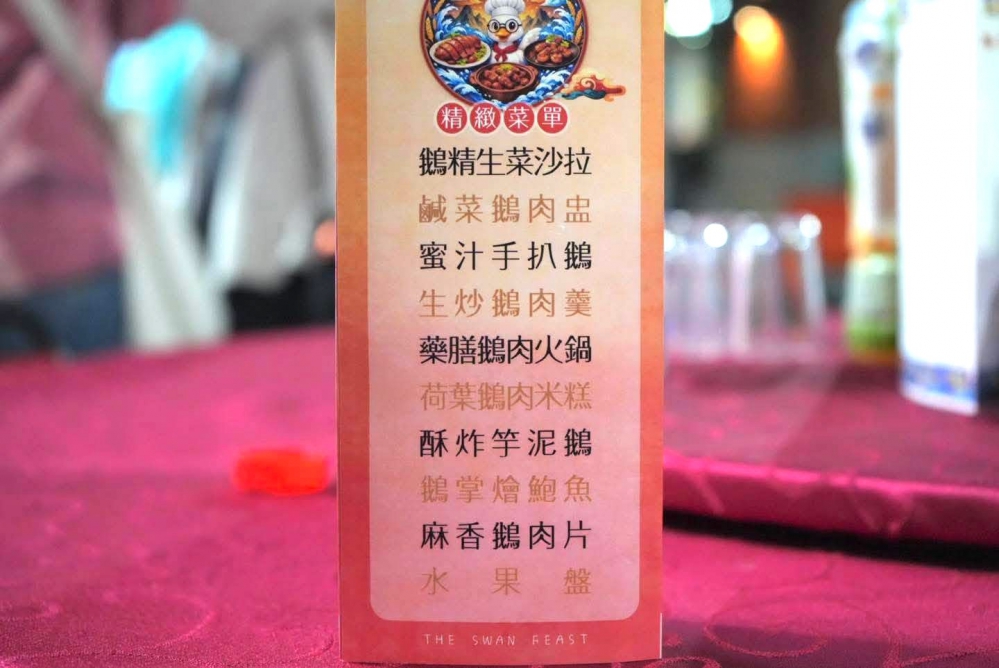 精緻菜單
鵝精生菜沙拉
鹹菜鵝肉盅
蜜汁手扒鵝
生炒鵝肉羹
藥膳鵝肉火鍋
荷葉鵝肉米糕
酥炸竽泥鵝
鵝掌燴鮑魚
麻香鵝肉片
水果盤
THE SWAN FEAST